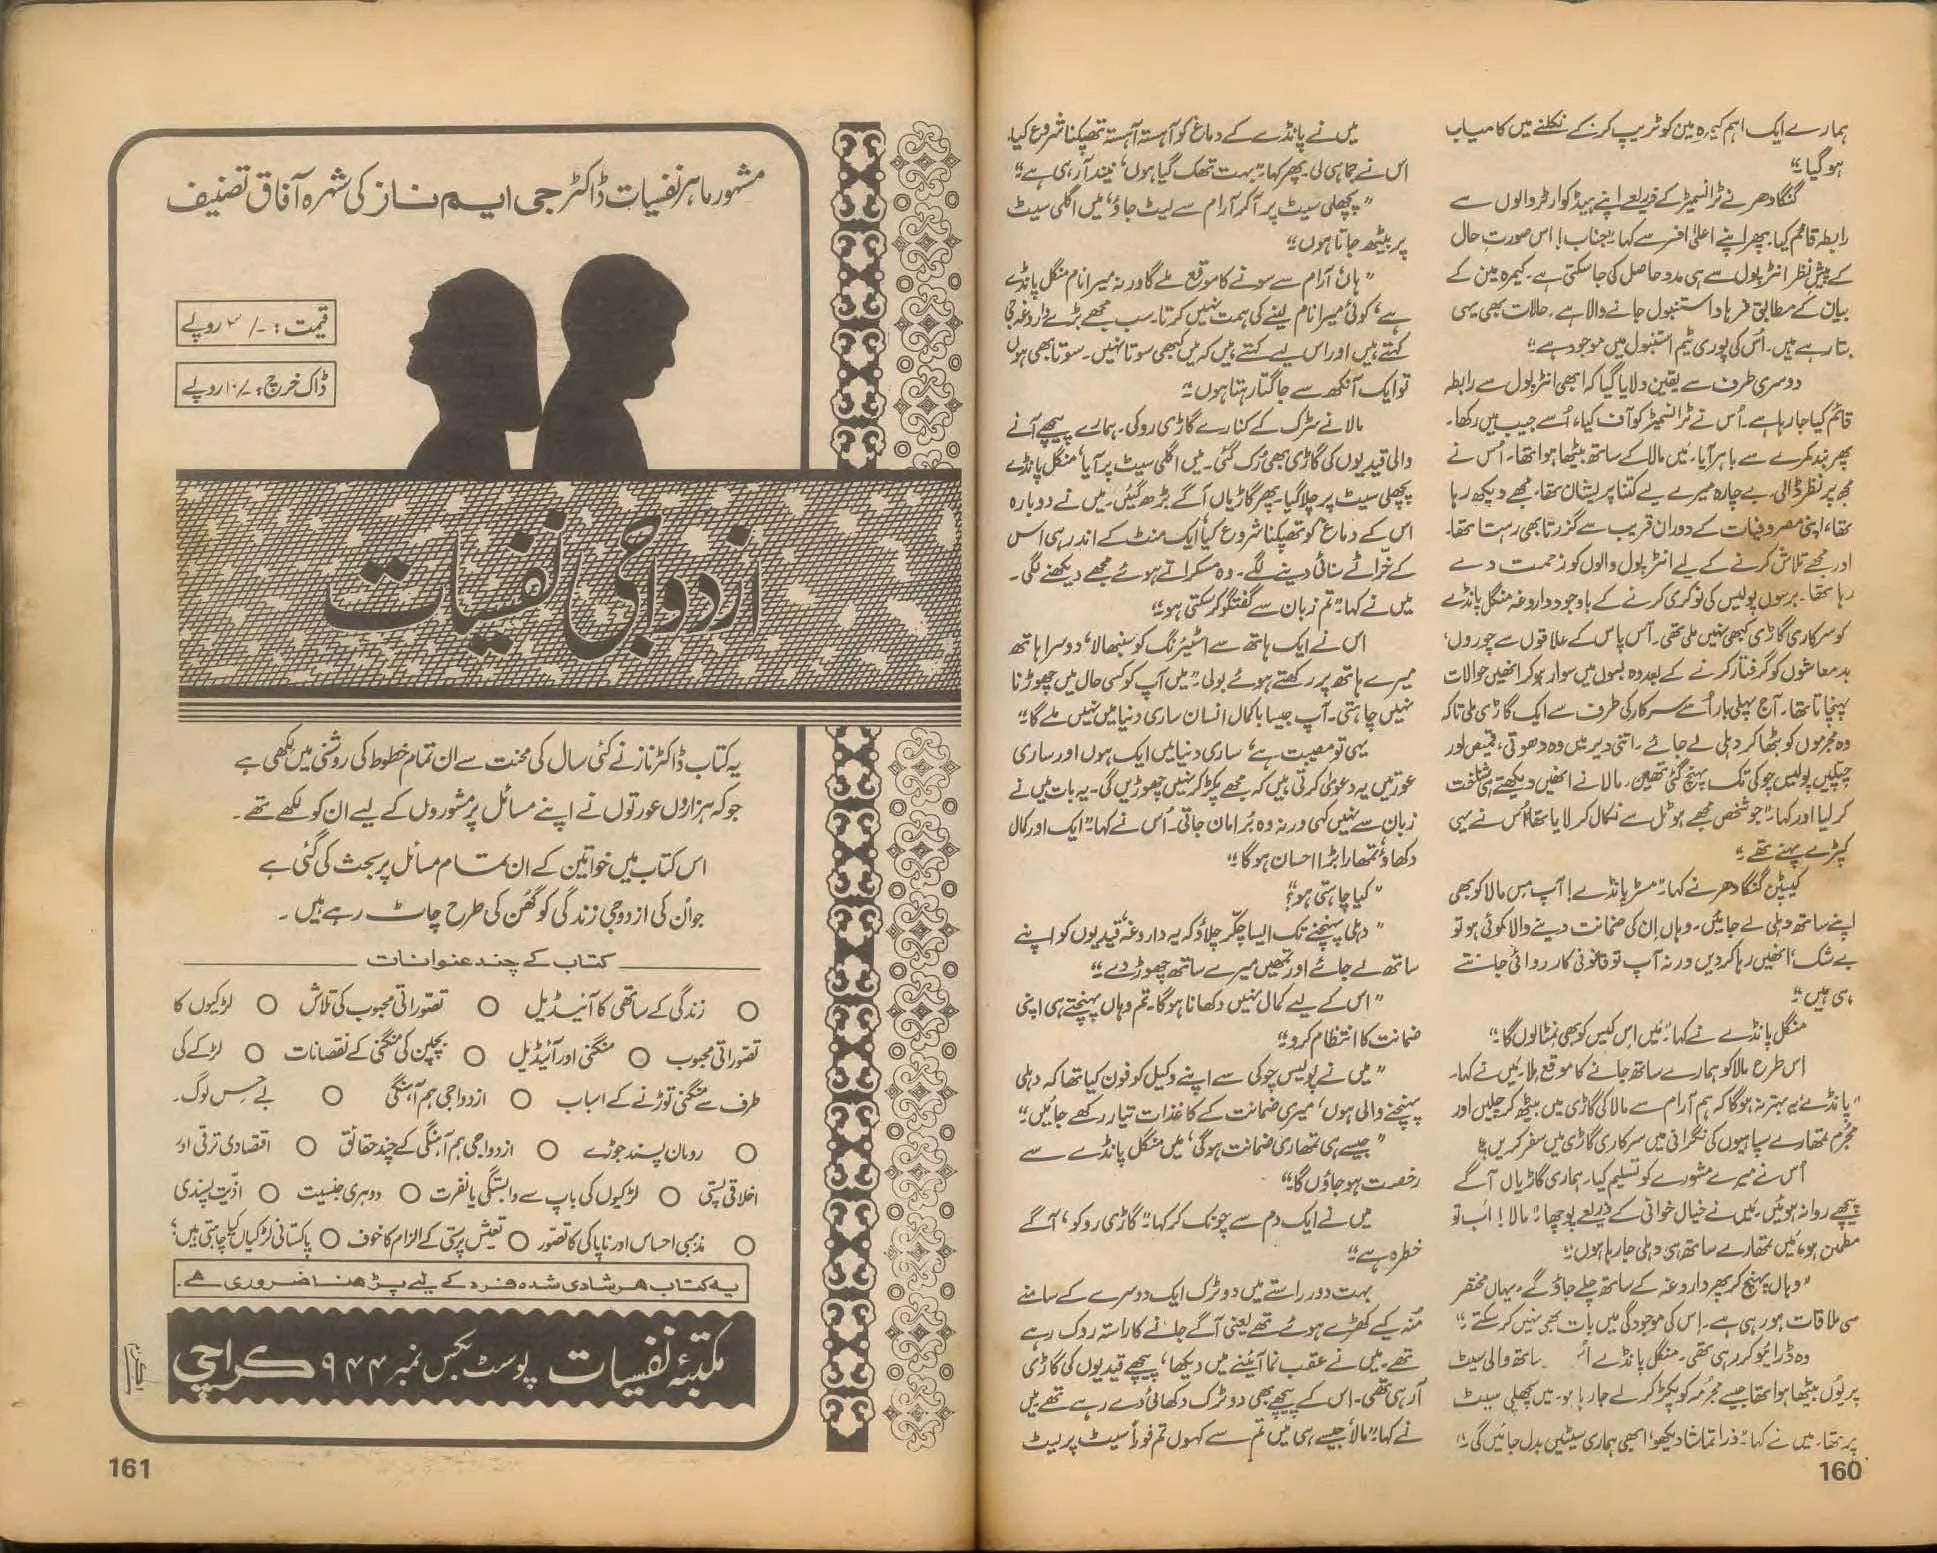 ہمارے ایک اہم کیمرہ مین کو ٹریپ کرکے نکلنے میں کامیاب
ہوگیا۔"
گنگادھر نے ٹرانسمیٹر کے ذریعے اپنے ہیڈ کوارٹر والوں سے
رابطہ قائم کیا۔ پھر اپنے اعلیٰ افسر سے کہا۔ "جناب! اس صورتِ حال
کے پیشِ نظر انٹرپول سے ہی مدد حاصل کی جاسکتی ہے۔ کیمرہ مین کے
بیان کے مطابق فرہاد استنبول جانے والا ہے۔ حالات بھی یہی
بتا رہے ہیں۔ اُس کی پوری ٹیم استنبول میں موجود ہے۔"
دوسری طرف سے یقین دلایا گیا کہ ابھی انٹرپول سے رابطہ
قائم کیا جارہا ہے۔ اُس نے ٹرانسمیٹر کو آف کیا، اُسے جیب میں رکھا۔
پھر بند کمرے سے باہر آیا۔ میں مالا کے ساتھ بیٹھا ہوا تھا۔ اُس نے
مجھ پر نظر ڈالی۔ بے چارہ میرے لیے کتنا پریشان تھا، مجھے دیکھ رہا
تھا، اپنی مصروفیات کے دوران قریب سے گزرتا بھی رہتا تھا۔
اور مجھے تلاش کرنے کے لیے انٹرپول والوں کو زحمت دے
رہا تھا۔ برسوں پولیس کی نوکری کرنے کے باوجود داروغہ منگل پانڈے
کو سرکاری گاڑی کبھی نہیں ملی تھی۔ آس پاس کے علاقوں سے چوروں،
بدمعاشوں کو گرفتار کرنے کے بعد وہ بسوں میں سوار ہوکر انھیں حوالات
پہنچاتا تھا۔ آج پہلی بار اُسے سرکار کی طرف سے ایک گاڑی ملی تاکہ
وہ مجرموں کو بٹھا کر دہلی لے جائے۔ اتنی دیر میں وہ دھوتی، قمیص اور
چپلیں پولیس چوکی تک پہنچ گئی تھیں۔ مالا نے انھیں دیکھتے ہی شناخت
کرلیا اور کہا۔ "جو شخص مجھے ہوٹل سے نکال کر لایا تھا اُس نے یہی
کپڑے پہنے تھے۔"
کیپٹن گنگادھر نے کہا۔ "مسٹر پانڈے! آپ مِس مالا کو بھی
اپنے ساتھ دہلی لے جائیں۔ وہاں اِن کی ضمانت دینے والا کوئی ہو تو
بے شک، انھیں رہا کردیں ورنہ آپ تو قانونی کارروائی جانتے
ہی ہیں۔"
منگل پانڈے نے کہا۔ "میں اس کیس کو بھی نمٹا لوں گا۔"
اس طرح مالا کو ہمارے ساتھ جانے کا موقع ملا۔ میں نے کہا۔
"پانڈے، یہ بہتر نہ ہوگا کہ ہم آرام سے مالا کی گاڑی میں بیٹھ کر چلیں اور
مُجرم تمھارے سپاہیوں کی نگرانی میں سرکاری گاڑی میں سفر کریں۔"
اُس نے میرے مشورے کو تسلیم کیا۔ ہماری گاڑیاں آگے
پیچھے روانہ ہوئیں۔ میں نے خیال خوانی کے ذریعے پوچھا۔ "مالا! اب تو
مطمئن ہو، میں تمھارے ساتھ ہی دہلی جارہا ہوں۔"
"وہاں پہنچ کر پھر داروغہ کے ساتھ چلے جاؤگے۔ یہاں مختصر
سی ملاقات ہورہی ہے۔ اِس کی موجودگی میں بات بھی نہیں کرسکتے۔"
وہ ڈرائیو کررہی تھی۔ منگل پانڈے ساتھ والی سیٹ
پر یُوں بیٹھا ہوا تھا جیسے مجرمہ کو پکڑ کر لے جارہا ہو۔ میں پچھلی سیٹ
پر تھا۔ میں نے کہا۔ "ذرا تماشا دیکھو، ابھی ہماری سیٹیں بدل جائیں گی۔"
160
میں نے پانڈے کے دماغ کو آہستہ آہستہ تھپکنا شروع کیا۔
اس نے جماہی لی۔ پھر کہا۔ "بہت تھک گیا ہوں، نیند آرہی ہے۔"
"پچھلی سیٹ پر آکر آرام سے لیٹ جاؤ، میں اگلی سیٹ
پر بیٹھ جاتا ہوں۔"
"ہاں، آرام سے سونے کا موقع ملے گا ورنہ میرا نام منگل پانڈے
ہے، کوئی میرا نام لینے کی ہمت نہیں کرتا۔ سب مجھے بڑے داروغہ جی
کہتے ہیں اور اس لیے کہتے ہیں کہ میں کبھی سوتا نہیں۔ سوتا بھی ہوں
تو ایک آنکھ سے جاگتا رہتا ہوں۔"
مالا نے سڑک کے کنارے گاڑی روکی۔ ہمارے پیچھے آنے
والی قیدیوں کی گاڑی بھی رُک گئی۔ میں اگلی سیٹ پر آیا، منگل پانڈے
پچھلی سیٹ پر چلا گیا۔ پھر گاڑیاں آگے بڑھ گئیں۔ میں نے دوبارہ
اس کے دماغ کو تھپکنا شروع کیا، ایک منٹ کے اندر ہی اس
کے خرّاٹے سنائی دینے لگے۔ وہ مسکراتے ہوئے مجھے دیکھنے لگی۔
میں نے کہا۔ "تم زبان سے گفتگو کرسکتی ہو۔"
اس نے ایک ہاتھ سے اسٹیئرنگ کو سنبھالا، دوسرا ہاتھ
میرے ہاتھ پر رکھتے ہوئے بولی۔ "میں آپ کو کسی حال میں چھوڑنا
نہیں چاہتی۔ آپ جیسا باکمال انسان ساری دنیا میں نہیں ملے گا۔"
یہی تو مصیبت ہے، ساری دنیا میں ایک ہوں اور ساری
عورتیں یہ دعویٰ کرتی ہیں کہ مجھے پکڑ کر نہیں چھوڑیں گی۔ یہ بات میں نے
زبان سے نہیں کہی ورنہ وہ بُرا مان جاتی۔ اُس نے کہا۔ "ایک اور کمال
دکھاؤ، تمھارا بڑا احسان ہوگا۔"
"کیا چاہتی ہو؟"
"دہلی پہنچنے تک ایسا چکّر چلاؤ کہ یہ داروغہ، قیدیوں کو اپنے
ساتھ لے جائے اور تمھیں میرے ساتھ چھوڑ دے۔"
"اس کے لیے کمال نہیں دکھانا ہوگا۔ تم وہاں پہنچتے ہی اپنی
ضمانت کا انتظام کرو۔"
"میں نے پولیس چوکی سے اپنے وکیل کو فون کیا تھا کہ دہلی
پہنچنے والی ہوں، میری ضمانت کے کاغذات تیار رکھے جائیں۔"
"جیسے ہی تمھاری ضمانت ہوگی، میں منگل پانڈے سے
رخصت ہوجاؤں گا۔"
میں نے ایک دم سے چونک کر کہا۔ "گاڑی روکو، آگے
خطرہ ہے۔"
بہت دور راستے میں دو ٹرک ایک دوسرے کے سامنے
مُنہ کیے کھڑے ہوئے تھے یعنی آگے جانے کا راستہ روک رہے
تھے۔ میں نے عقب نما آئینے میں دیکھا، پیچھے قیدیوں کی گاڑی
آرہی تھی۔ اس کے پیچھے بھی دو ٹرک دکھائی دے رہے تھے میں
نے کہا۔ "مالا، جیسے ہی میں تم سے کہوں تم فوراً سیٹ پر لیٹ
مشہور ماہر نفسیات ڈاکٹر جی ایم ناز کی شہرہ آفاق تصنیف
قیمت: -/ ۳ روپے
ڈاک خرچ: -/۱۰ روپے
ازدواجی نفسیات
یہ کتاب ڈاکٹر ناز نے کئی سال کی محنت سے ان تمام خطوط کی روشنی میں لکھی ہے
جو کہ ہزاروں عورتوں نے اپنے مسائل پر مشوروں کے لیے ان کو لکھے تھے۔
اس کتاب میں خواتین کے ان تمام مسائل پر بحث کی گئی ہے
جو اُن کی ازدواجی زندگی کو گھُن کی طرح چاٹ رہے ہیں۔
کتاب کے چند عنوانات
○ زندگی کے ساتھی کا آئیڈیل ○ تصوّراتی محبوب کی تلاش ○ لڑکیوں کا
تصوّراتی محبوب ○ منگنی اور آئیڈیل ○ بچپن کی منگنی کے نقصانات ○ لڑکے کی
طرف سے منگنی توڑنے کے اسباب ○ ازدواجی ہم آہنگی ○ بے حِس لوگ۔
○ رومان پسند جوڑے ○ ازدواجی ہم آہنگی کے چند حقائق ○ اقتصادی ترقی اور
اخلاقی پستی ○ لڑکیوں کی باپ سے وابستگی یا نفرت ○ دوہری جنسیت ○ اذیّت پسندی
○ مذہبی احساس اور ناپاکی کا تصّور ○ تعیش پرستی کے الزام کا خوف ○ پاکستانی لڑکیاں کیا چاہتی ہیں؟
یہ کتاب ہر شادی شدہ فرد کے لیے پڑھنا ضروری ہے۔
مکتبۂ نفسیات پوسٹ بکس نمبر ۹۴۴ کراچی
161